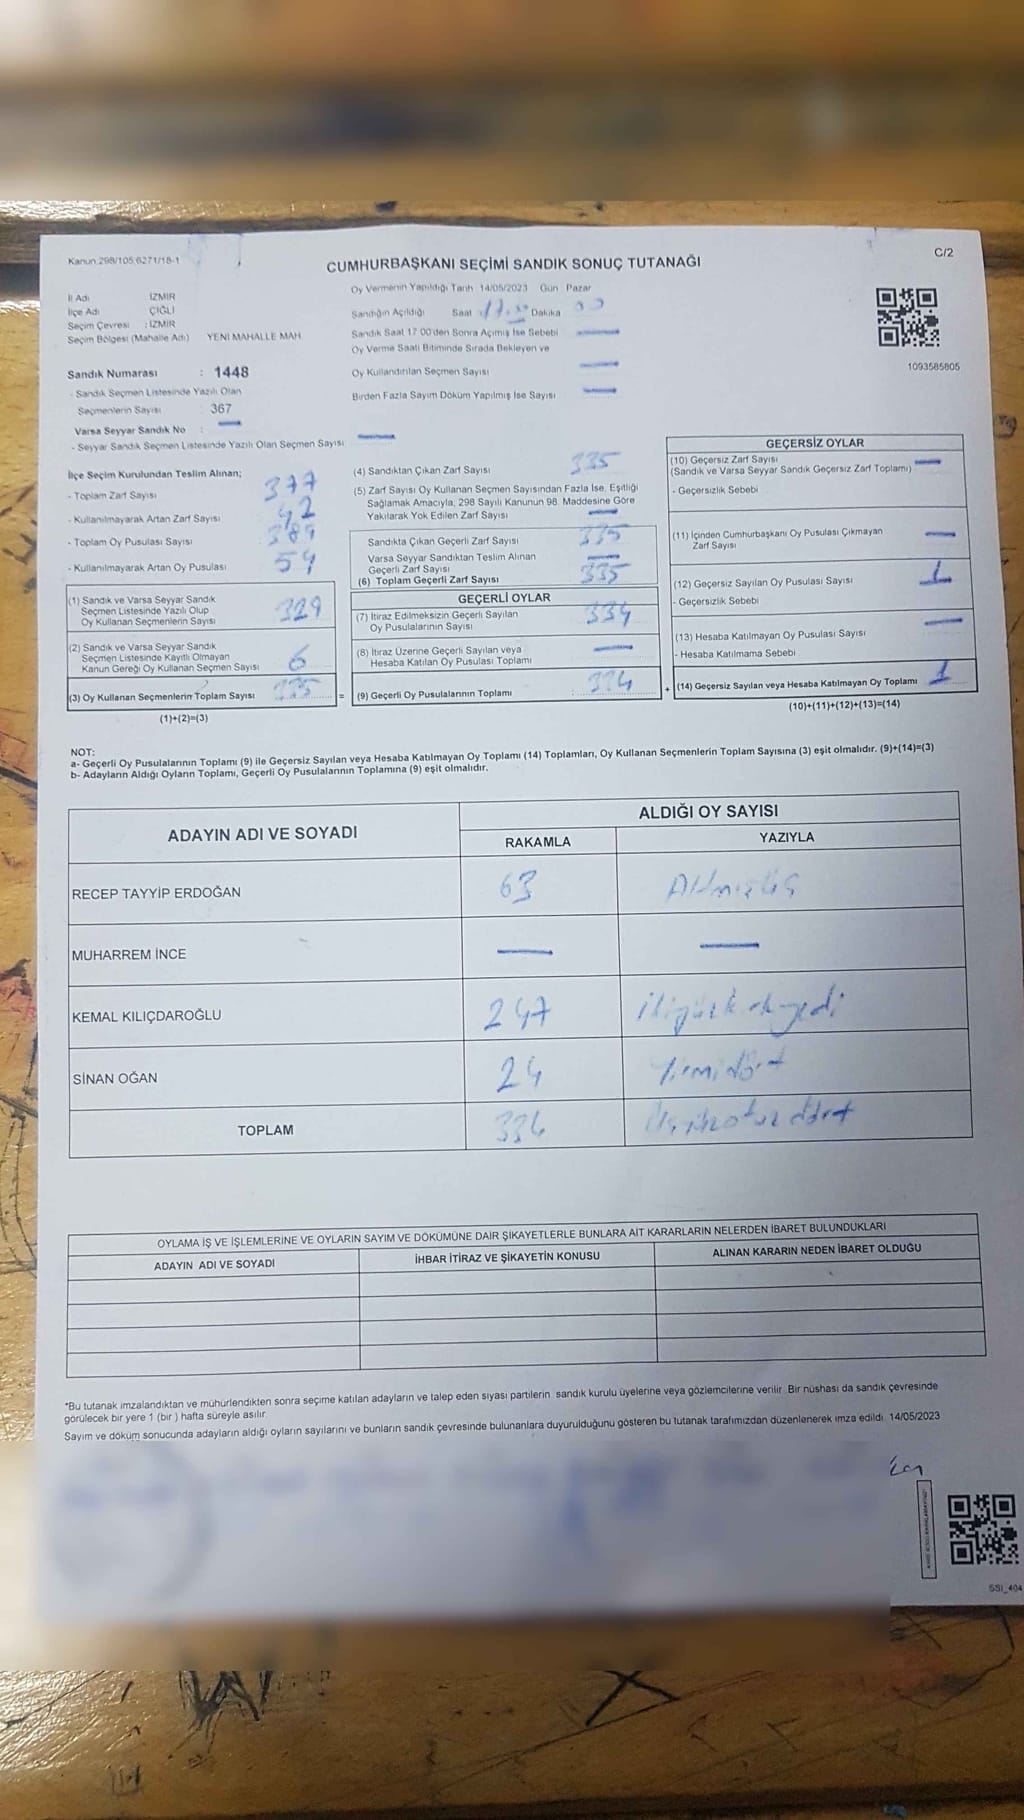 Kanun.298/105,6271/18-1
C/2
CUMHURBAŞKANI SEÇİMİ SANDIK SONUÇ TUTANAĞI
İl Adı İZMİR
İlçe Adı ÇİĞLİ
Seçim Çevresi : İZMİR
Seçim Bölgesi (Mahalle Adı) YENİ MAHALLE MAH
Oy Vermenin Yapıldığı Tarih 14/05/2023 Gün Pazar
Sandığın Açıldığı Saat 17.00 Dakika
Sandık Saat 17 00'den Sonra Açılmış İse Sebebi
Oy Verme Saati Bitiminde Sırada Bekleyen ve
Oy Kullandırılan Seçmen Sayısı
Birden Fazla Sayım Döküm Yapılmış İse Sayısı
1093585805
Sandık Numarası : 1448
- Sandık Seçmen Listesinde Yazılı Olan
Seçmenlerin Sayısı : 367
Varsa Seyyar Sandık No :
- Seyyar Sandık Seçmen Listesinde Yazılı Olan Seçmen Sayısı
İlçe Seçim Kurulundan Teslim Alınan;
- Toplam Zarf Sayısı 377
- Kullanılmayarak Artan Zarf Sayısı 42
- Toplam Oy Pusulası Sayısı 389
- Kullanılmayarak Artan Oy Pusulası 54
(1) Sandık ve Varsa Seyyar Sandık
Seçmen Listesinde Yazılı Olup
Oy Kullanan Seçmenlerin Sayısı 329
(2) Sandık ve Varsa Seyyar Sandık
Seçmen Listesinde Kayıtlı Olmayan
Kanun Gereği Oy Kullanan Seçmen Sayısı 6
(3) Oy Kullanan Seçmenlerin Toplam Sayısı 335 =
(1)+(2)=(3)
(4) Sandıktan Çıkan Zarf Sayısı 335
(5) Zarf Sayısı Oy Kullanan Seçmen Sayısından Fazla İse, Eşitliği
Sağlamak Amacıyla, 298 Sayılı Kanunun 98. Maddesine Göre
Yakılarak Yok Edilen Zarf Sayısı
Sandıkta Çıkan Geçerli Zarf Sayısı 335
Varsa Seyyar Sandıktan Teslim Alınan
Geçerli Zarf Sayısı
(6) Toplam Geçerli Zarf Sayısı 335
GEÇERLİ OYLAR
(7) İtiraz Edilmeksizin Geçerli Sayılan
Oy Pusulalarının Sayısı 334
(8) İtiraz Üzerine Geçerli Sayılan veya
Hesaba Katılan Oy Pusulası Toplamı
(9) Geçerli Oy Pusulalarının Toplamı : 334 +
GEÇERSİZ OYLAR
(10) Geçersiz Zarf Sayısı
(Sandık ve Varsa Seyyar Sandık Geçersiz Zarf Toplamı)
- Geçersizlik Sebebi
(11) İçinden Cumhurbaşkanı Oy Pusulası Çıkmayan
Zarf Sayısı
(12) Geçersiz Sayılan Oy Pusulası Sayısı 1
- Geçersizlik Sebebi
(13) Hesaba Katılmayan Oy Pusulası Sayısı
- Hesaba Katılmama Sebebi
(14) Geçersiz Sayılan veya Hesaba Katılmayan Oy Toplamı 1
(10)+(11)+(12)+(13)=(14)
NOT:
a- Geçerli Oy Pusulalarının Toplamı (9) ile Geçersiz Sayılan veya Hesaba Katılmayan Oy Toplamı (14) Toplamları, Oy Kullanan Seçmenlerin Toplam Sayısına (3) eşit olmalıdır. (9)+(14)=(3)
b- Adayların Aldığı Oyların Toplamı, Geçerli Oy Pusulalarının Toplamına (9) eşit olmalıdır.
ADAYIN ADI VE SOYADI ALDIĞI OY SAYISI
RAKAMLA YAZIYLA
RECEP TAYYİP ERDOĞAN 63 Altmışüç
MUHARREM İNCE
KEMAL KILIÇDAROĞLU 247 ikiyüzkırkyedi
SİNAN OĞAN 24 Yirmidört
TOPLAM 334 Üçyüzotuzdört
OYLAMA İŞ VE İŞLEMLERİNE VE OYLARIN SAYIM VE DÖKÜMÜNE DAİR ŞİKAYETLERLE BUNLARA AİT KARARLARIN NELERDEN İBARET BULUNDUKLARI
ADAYIN ADI VE SOYADI İHBAR İTİRAZ VE ŞİKAYETİN KONUSU ALINAN KARARIN NEDEN İBARET OLDUĞU
*Bu tutanak imzalandıktan ve mühürlendikten sonra seçime katılan adayların ve talep eden siyasi partilerin sandık kurulu üyelerine veya gözlemcilerine verilir. Bir nüshası da sandık çevresinde
görülecek bir yere 1 (bir ) hafta süreyle asılır.
Sayım ve döküm sonucunda adayların aldığı oyların sayılarını ve bunların sandık çevresinde bulunanlara duyurulduğunu gösteren bu tutanak tarafımızdan düzenlenerek imza edildi. 14/05/2023
SSI_404